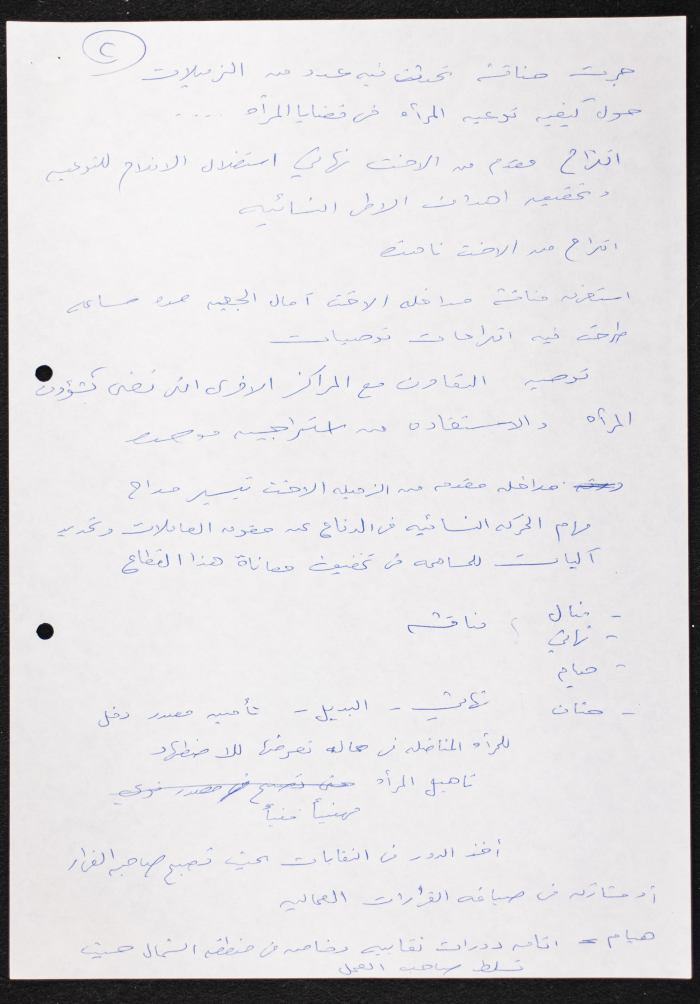 ٢
جرت مناقشة تحدثت فيه عدد من الزميلات
حول كيفيه توعيه المرأه في قضايا المرأه ....
اقتراح مقدم من الاخت نهاني استغلال الافلام للتوعيه
وتحقيق اهداف الاطر النسائيه
اقتراح من الاخت
استغرقت مناقشة مداخله الاخت آمال الجعبه ساعه
طرحت فيه اقتراحات توصيات
توصيه التعاون مع المراكز الاخرى التي تعنى بشؤون
المرأه والاستفاده من استراتجيه موحده
مداخله مقدمه من الزميله الاخت تيسير مداح
مهام الحركه النسائيه في الدفاع عن حقوق العاملات وتحديد
آليات للمساهمه في تخفيف معاناة هذا القطاع
- منال
- تهاني
- هيام
- حنان
مناقشه
تهاني - البديل - تأمين مصدر دخل
للمرأه المناضله في حاله تعرضها للاضطهاد
تاهيل المرأه حتى تصبح في مصدر
مهنياً فنياً
أخذ الدور في النقابات بحيث تصبح صاحبه القرار
أو مشاركه في صياغه القرارات العماليه
هيام = اقامه دورات نقابيه وخاصه في منطقه الشمال حيث
تسلط صاحب العمل